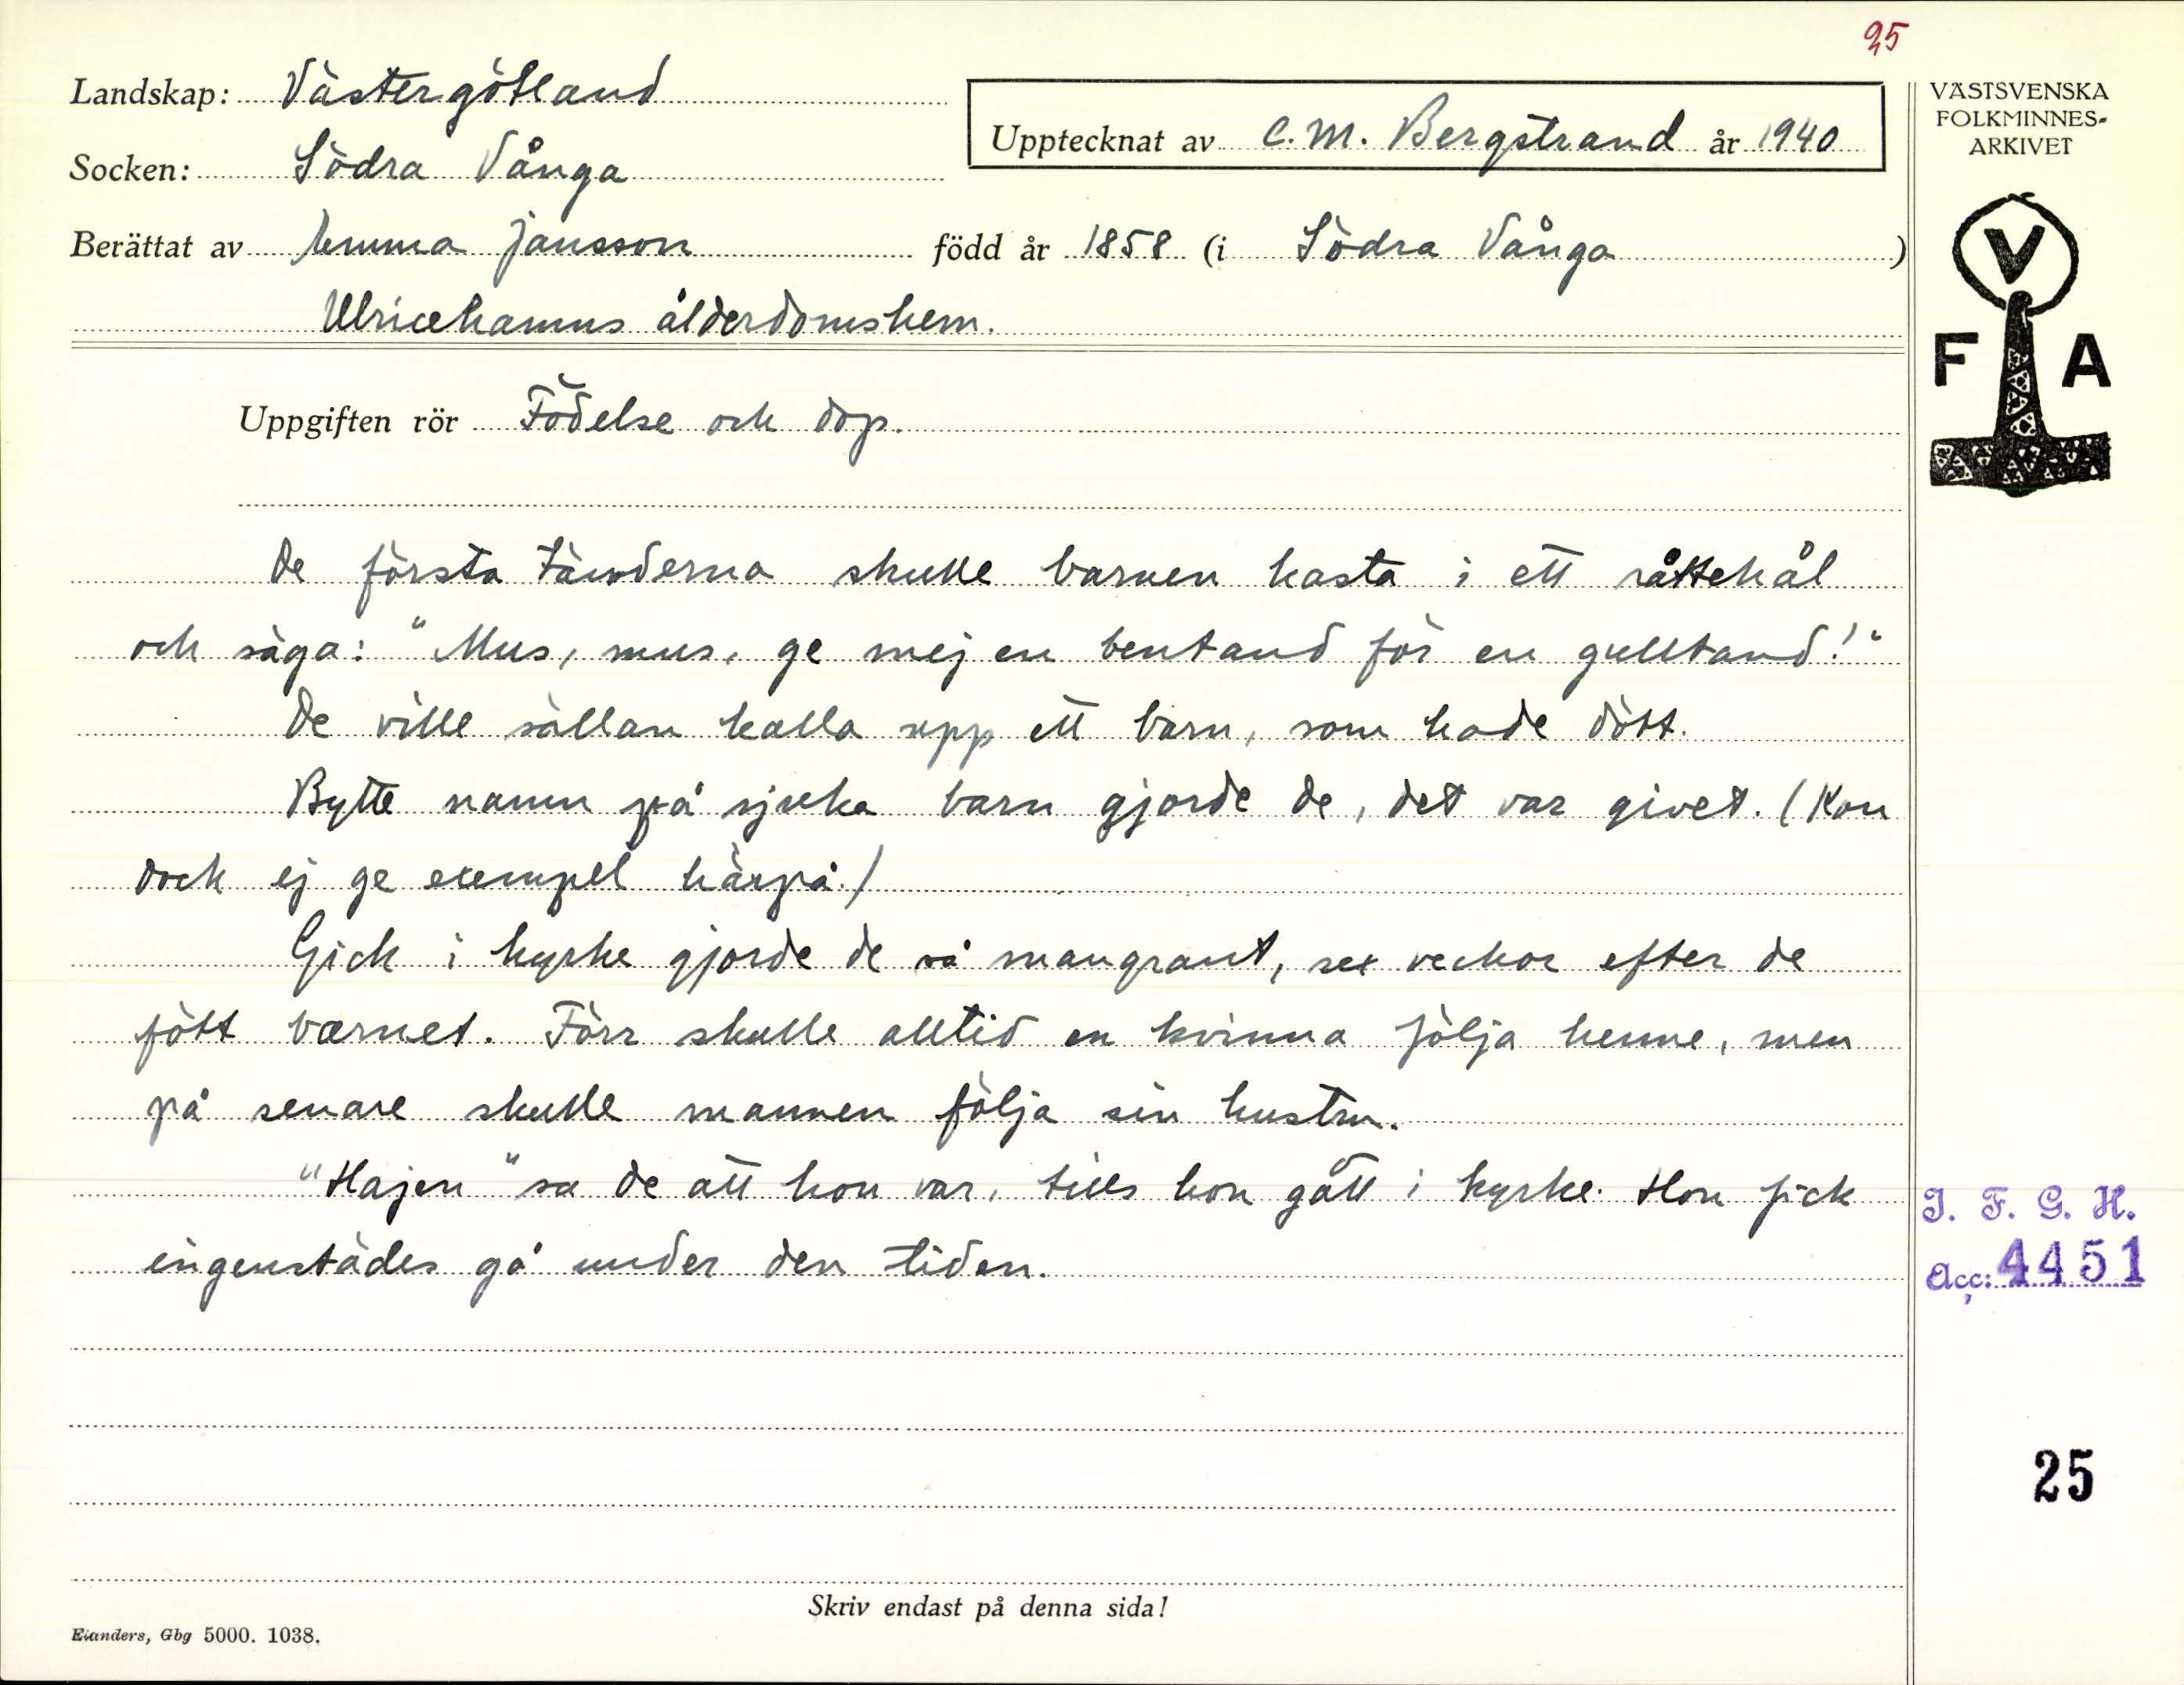 25
Landskap: Västergötland
Upptecknat av C. M. Bergstrand år 1940
Socken: Södra Vånga
Berättat av Emma Jansson född år 1858 (i Södra Vånga )
Ulricehamns ålderdomshem.
Uppgiften rör Födelse och dop.
De första tänderna skulle barnen kasta i ett råttehål
och säga: "Mus, mus, ge mej en bentand för en gulltand!"
De ville sällan kalla upp ett barn, som hade dött.
Bytte namn på sjuka barn gjorde de, det var givet. (Kon
dock ej ge exempel härpå.)
Gick i kyrke gjorde de så mangrant, sex veckor efter de
fött barnet. Förr skulle alltid en kvinna följa henne, men
på senare skulle mannen följa sin hustru.
"Hajen" sa de att hon var, tills hon gått i kyrke. Hon fick
ingenstädes gå under den tiden.
Skriv endast på denna sida!
Elanders, Gbg 5000. 1038.
VÄSTSVENSKA
FOLKMINNES-
ARKIVET
V
F A
I. F. G. H.
Acc: 4451
25